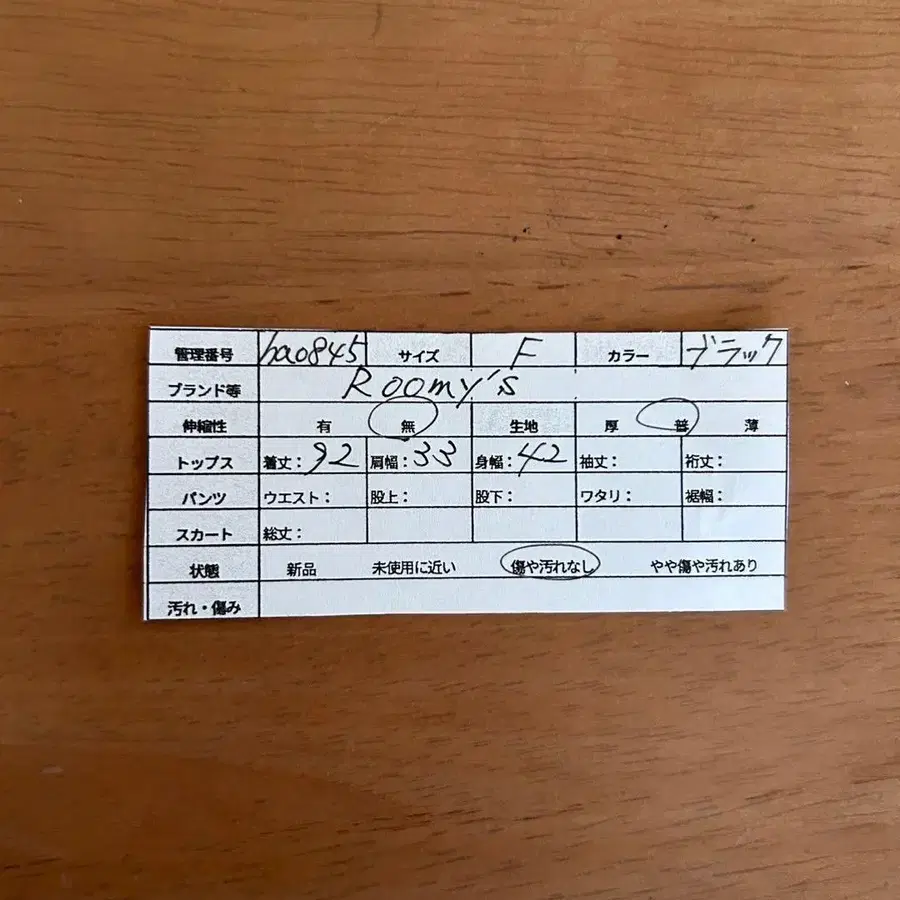 管理番号 hao845 サイズ F カラー ブラック
ブランド等 Roomy's
伸縮性 有 無 生地 厚 普 薄
トップス 着丈：92 肩幅：33 身幅：42 袖丈： 裄丈：
パンツ ウエスト： 股上： 股下： ワタリ： 裾幅：
スカート 総丈：
状態 新品 未使用に近い 傷や汚れなし やや傷や汚れあり
汚れ・傷み